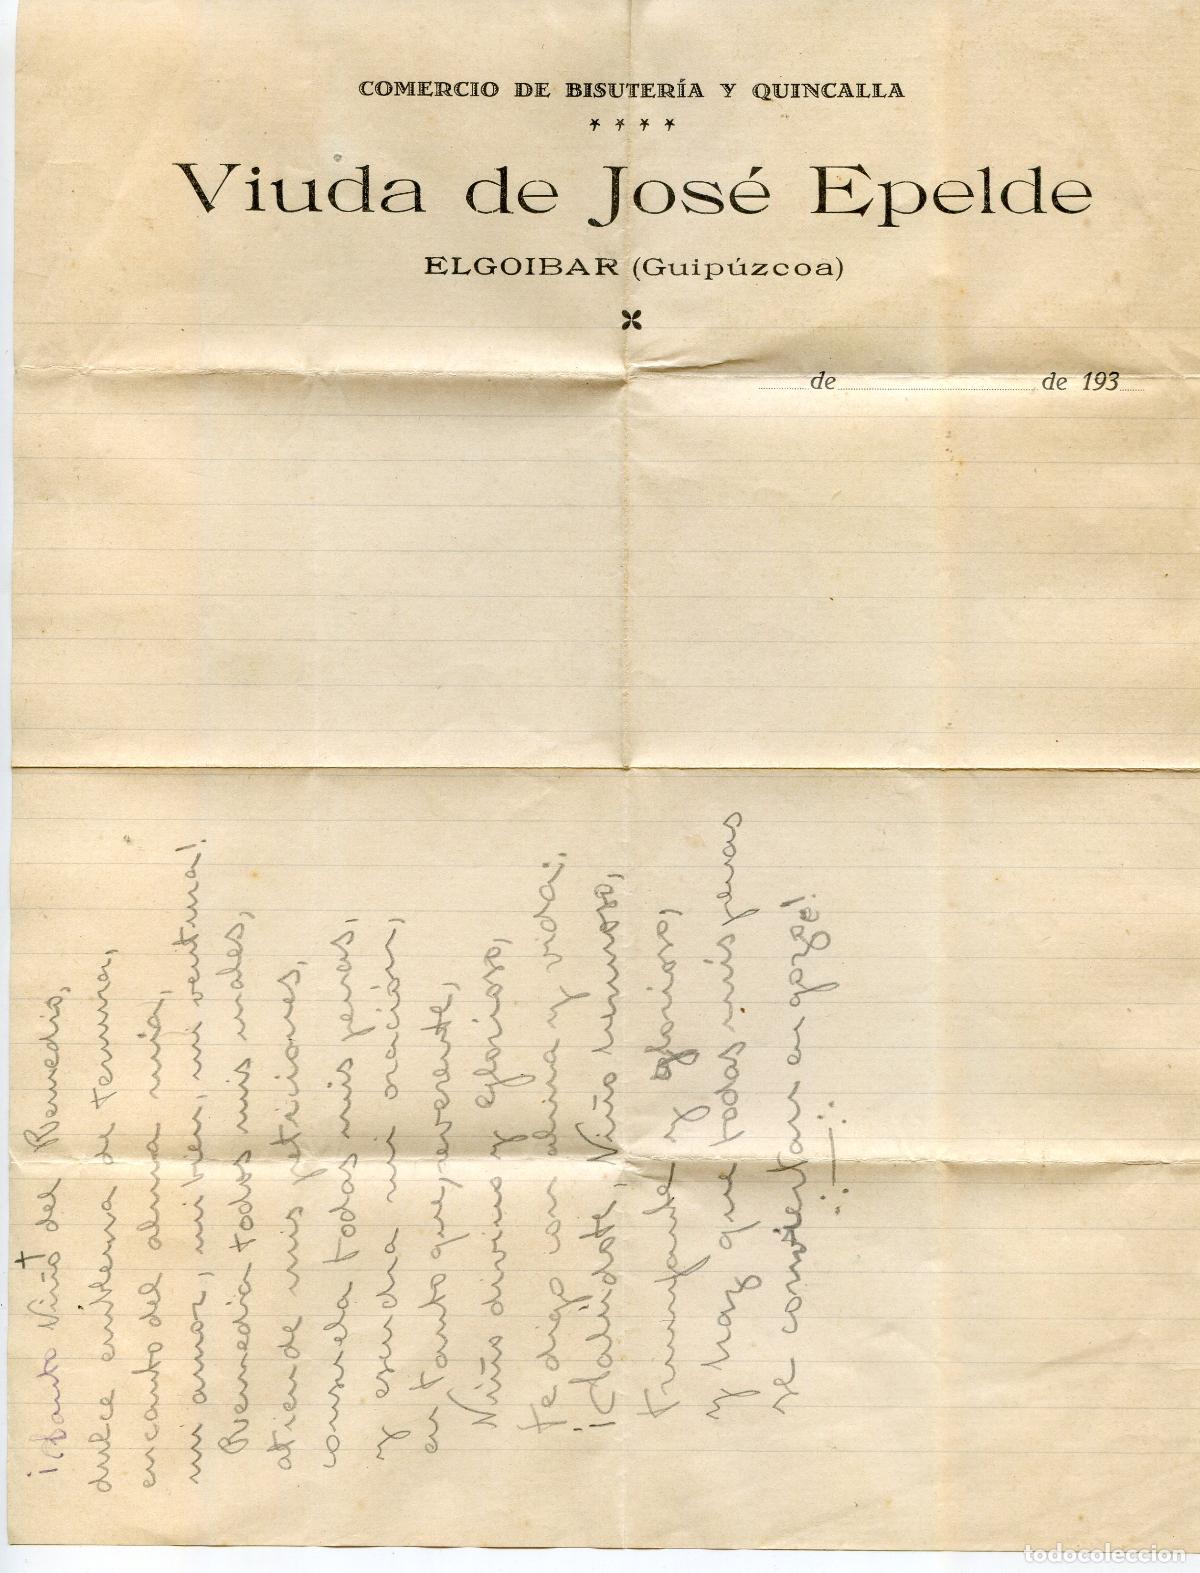 COMERCIO DE BISUTERÍA Y QUINCALLA
Viuda de José Epelde
ELGOIBAR (Guipúzcoa)
de de 193
¡Santo Niño del Remedio,
dulce emblema de ternura,
encanto del alma mía,
mi amor, mi bien, mi ventura!
Remedia todos mis males,
atiende mis peticiones,
consuela todas mis penas,
y escucha mi oración,
en tanto que, reverente,
Niño divino y glorioso,
te digo con alma y vida:
¡Salúdote, Niño hermoso,
triunfante y glorioso,
y haz que todas mis penas
se conviertan en gozo!
todocoleccion